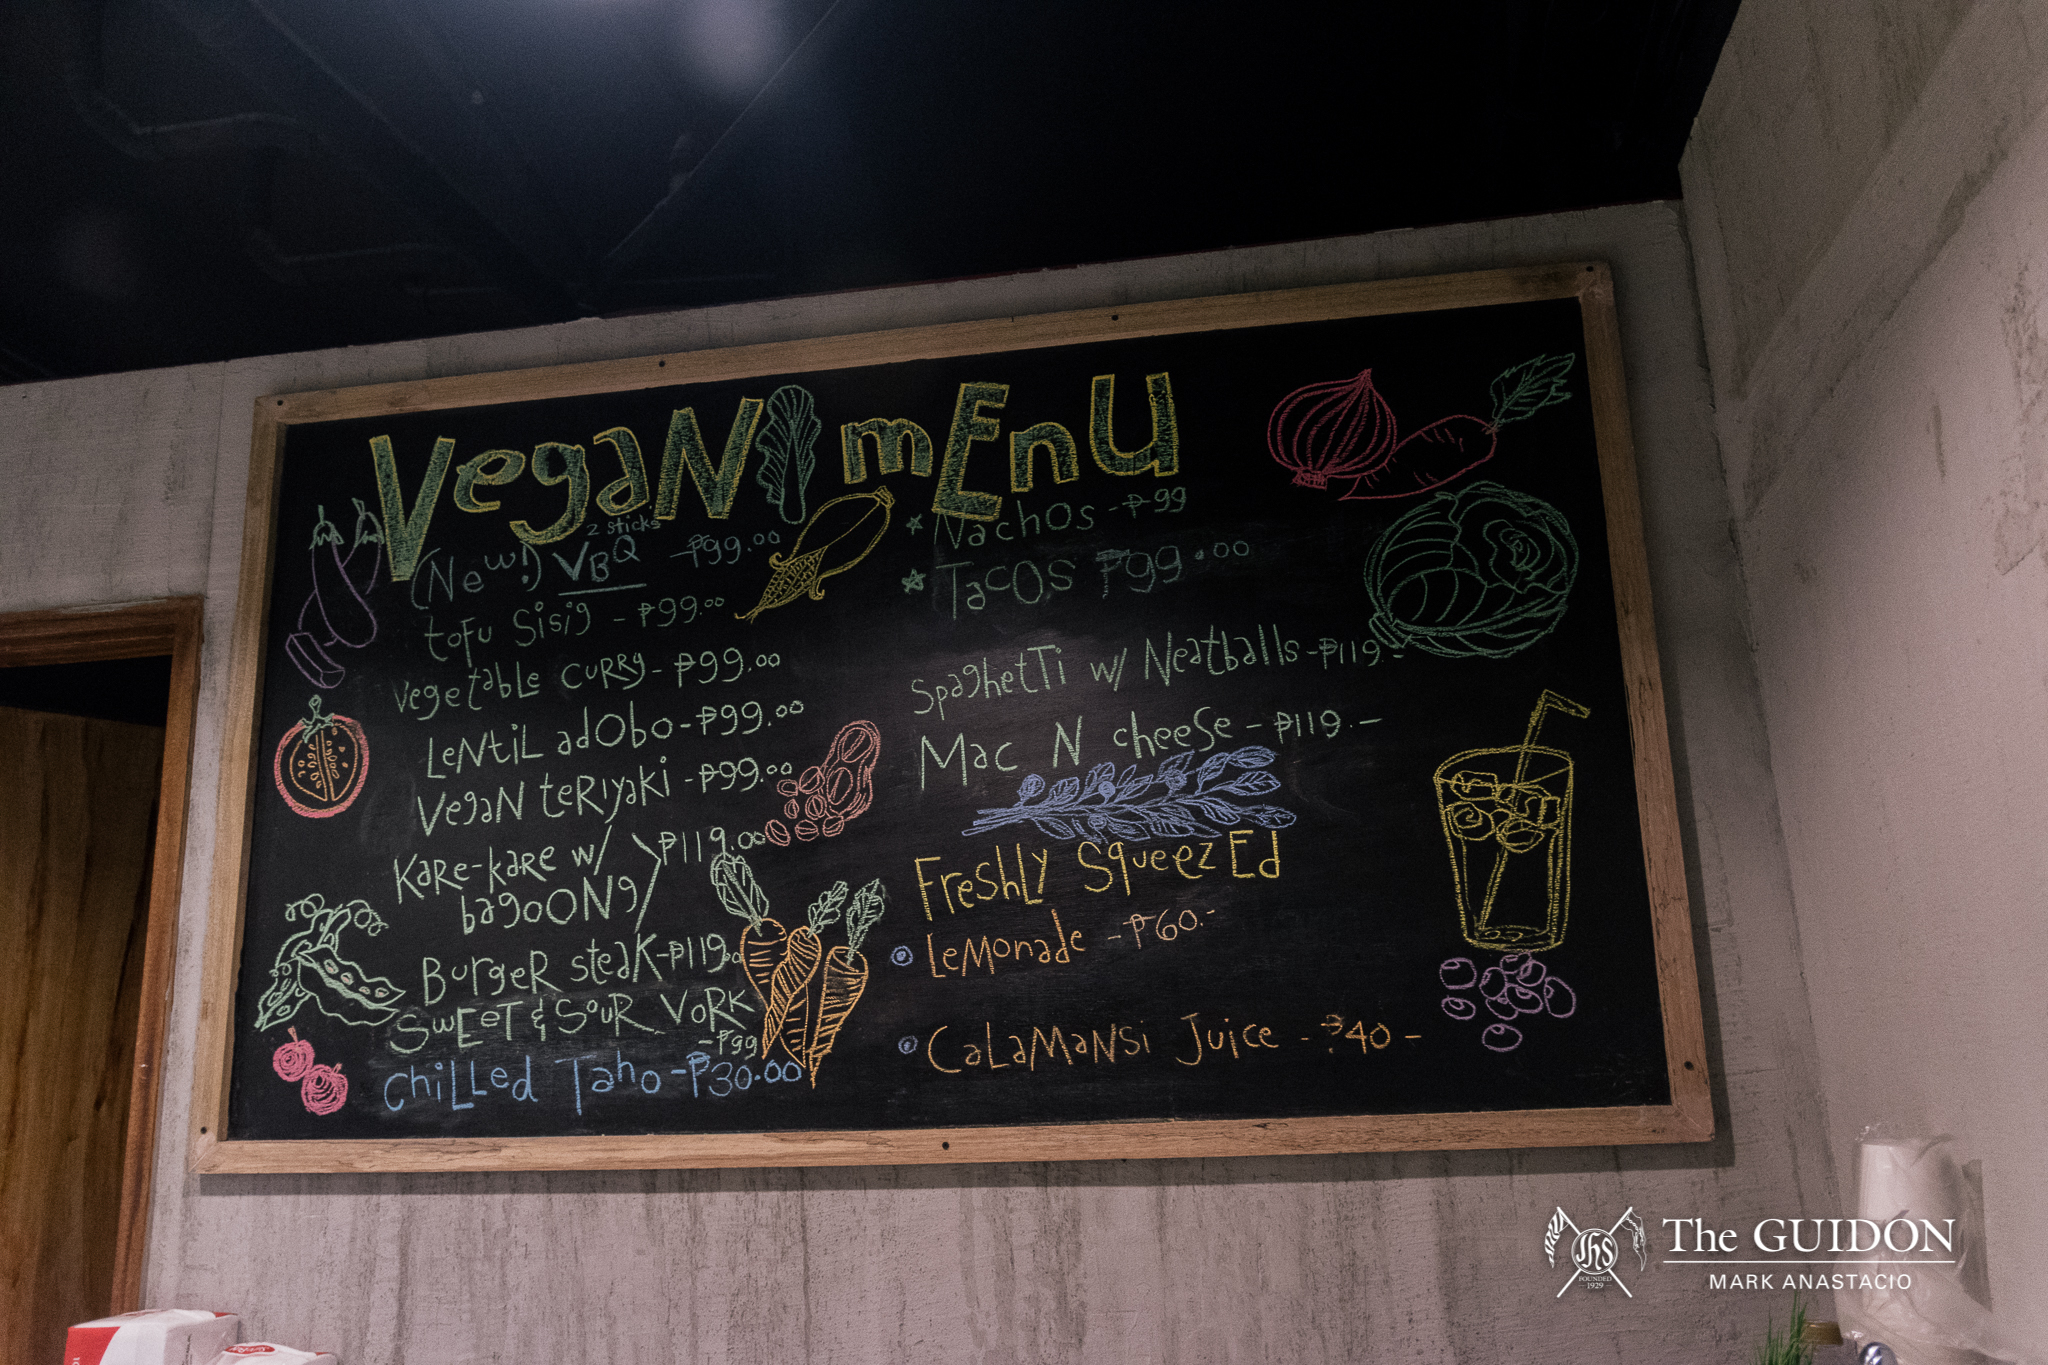 Vegan menu
(New!) VBQ 2 sticks -₱99.00
tofu Sisig - ₱99.00
vegetable curry - ₱99.00
Lentil adobo - ₱99.00
Vegan teriyaki - ₱99.00
Kare-kare w/
bagoong ₱119.00
Burger steak - ₱119.00
Sweet & Sour Vork
- ₱99
Chilled Taho - ₱30.00
Nachos - ₱99
Tacos ₱99.00
Spaghetti w/ Neatballs - ₱119.-
Mac N cheese - ₱119.-
Freshly Squeezed
Lemonade - ₱60.-
Calamansi Juice - ₱40 -
The GUIDON
MARK ANASTACIO
JhS
FOUNDED
1929